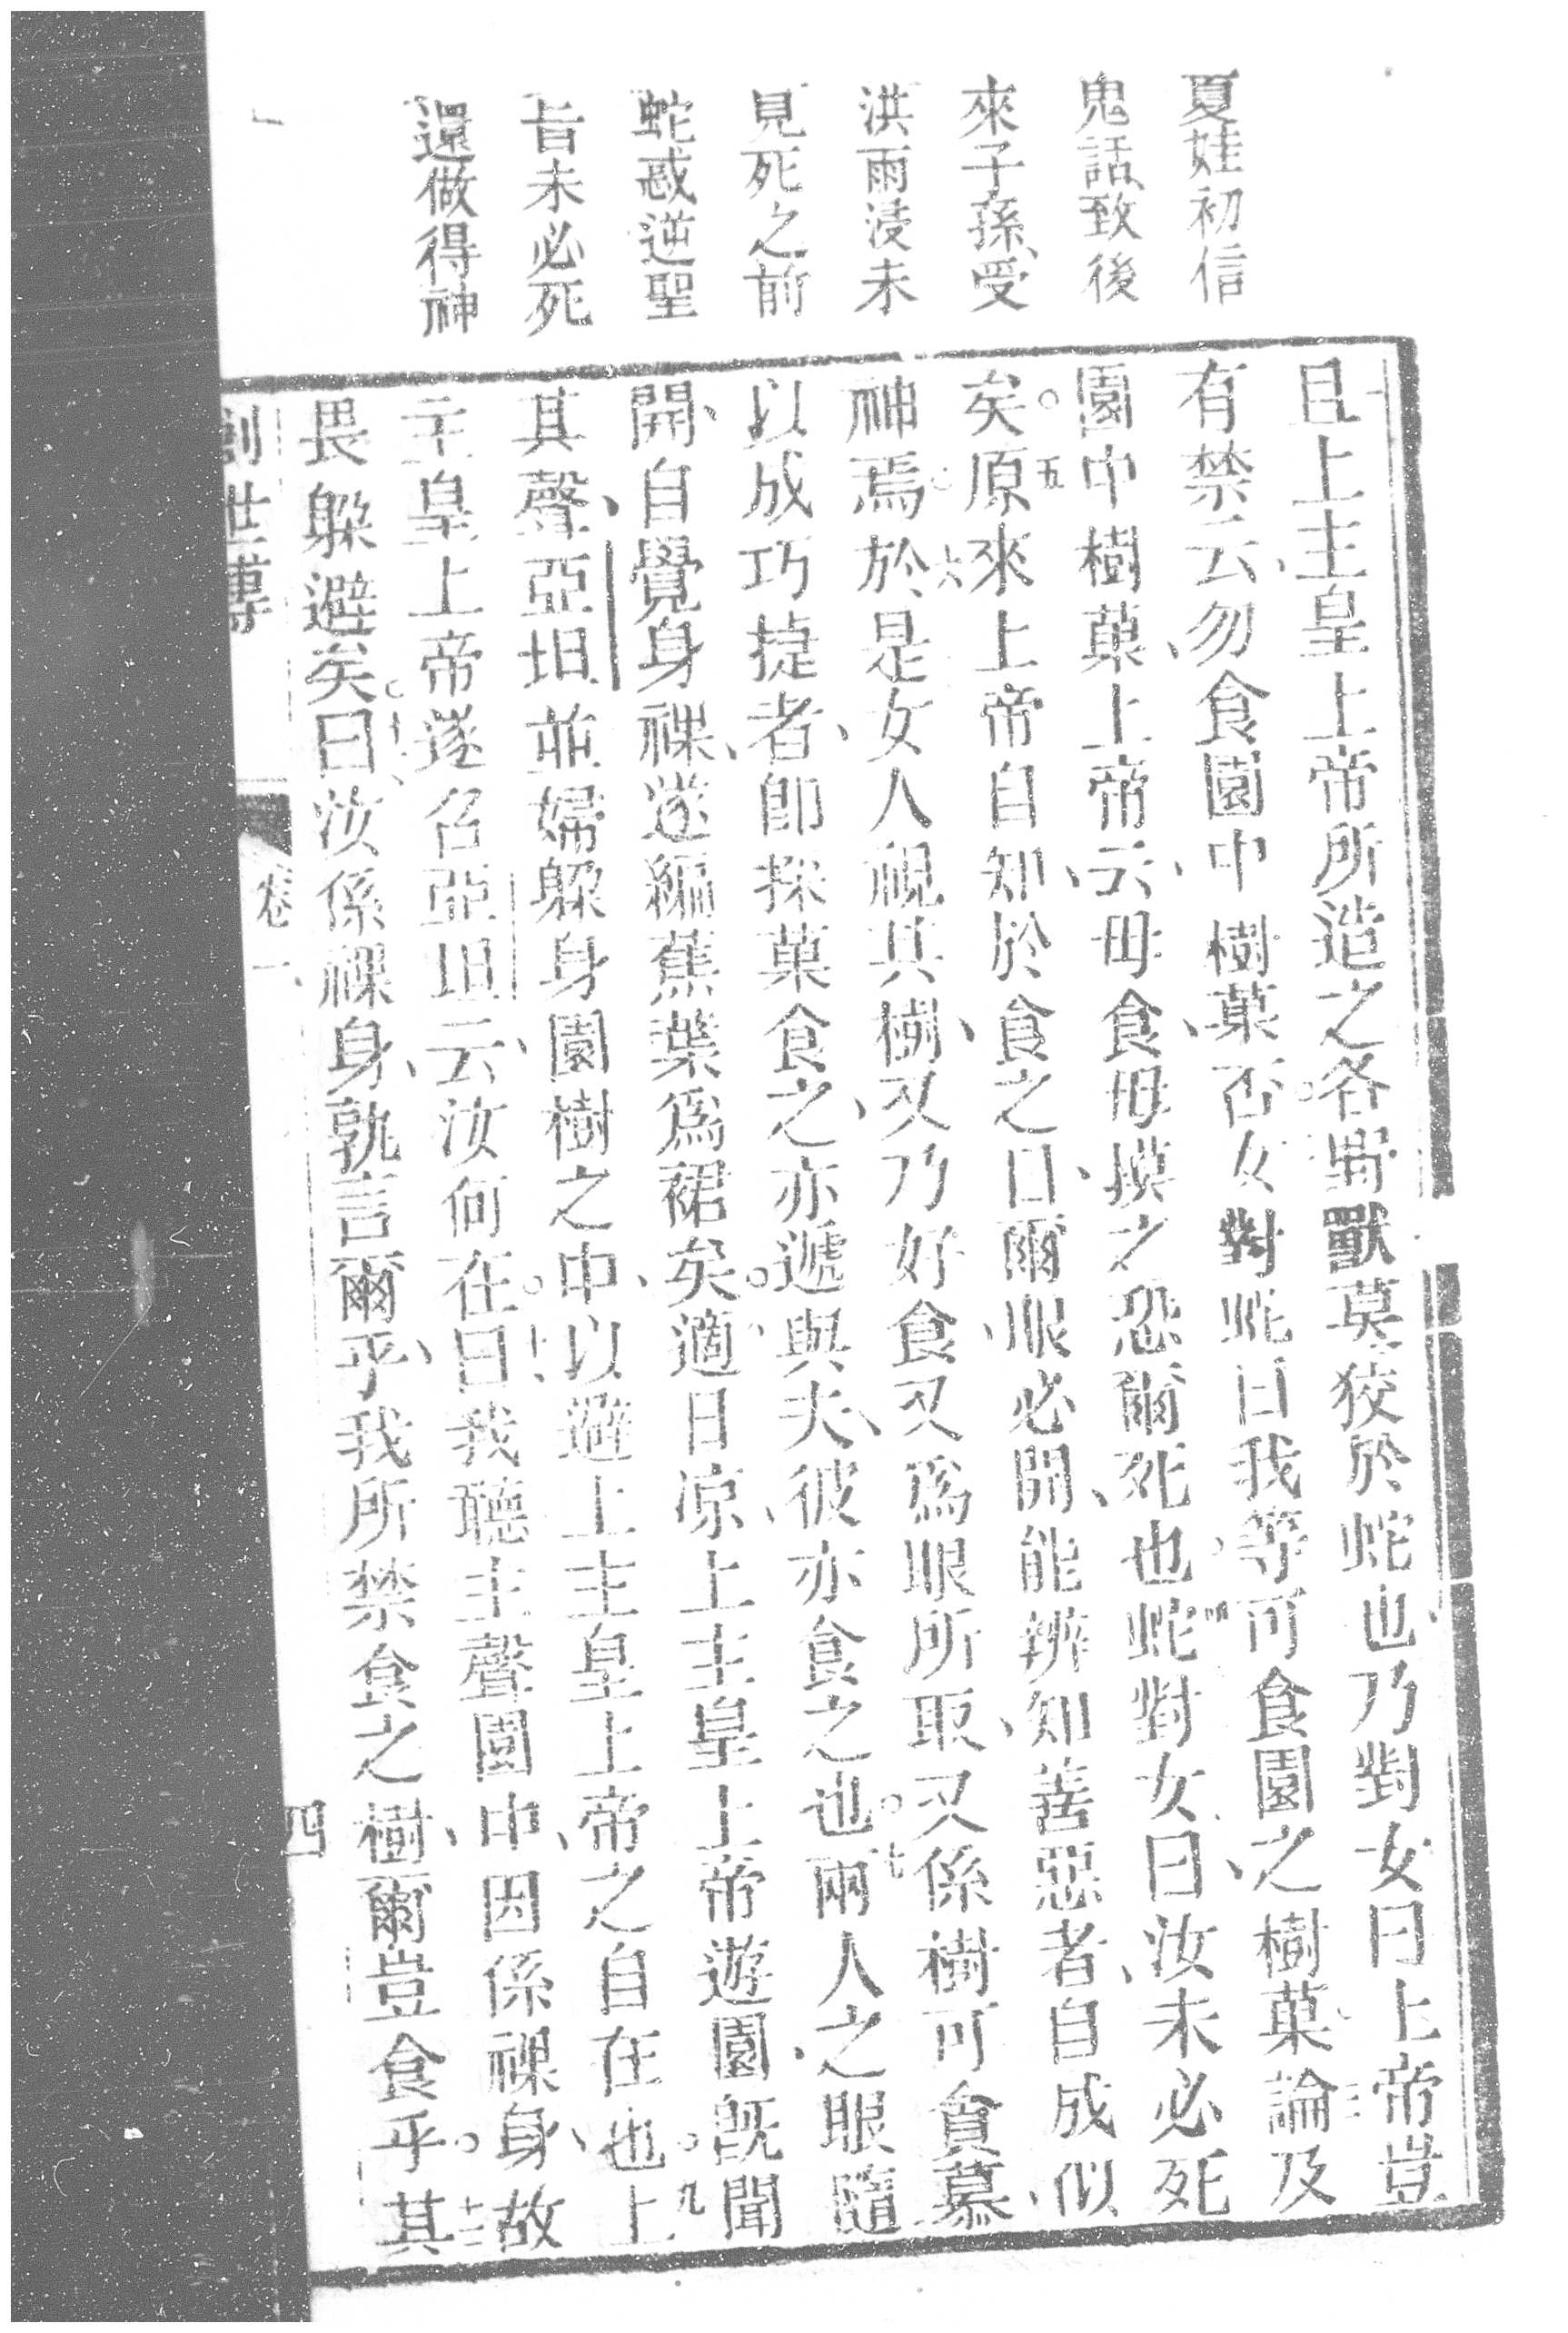 夏娃初信
鬼話致後
來子孫受
洪雨浸未
見死之前
蛇惑逆聖
旨未必死
還做得神
且上主皇上帝所造之各野獸莫狡於蛇也乃對女曰上帝豈
有禁云勿食園中樹菓否二女對蛇曰我等可食園之樹菓論及
園中樹菓上帝云毋食毋摸之恐爾死也四蛇對女曰汝未必死
矣五原來上帝自知於食之日爾眼必開能辨知善惡者自成似
神焉六於是女人視其樹又乃好食又爲眼所取又係樹可貪慕
以成巧捷者卽採菓食之亦遞與夫彼亦食之也七兩人之眼隨
開自覺身裸遂編蕉葉爲裙矣適日凉上主皇上帝遊園旣聞
其聲亞坦並婦躲身園樹之中以避上主皇上帝之自在也九上
主皇上帝遂召亞坦云汝何在十曰我聽主聲園中因係裸身故
畏躲避矣十一曰汝係裸身孰言爾乎我所禁食之樹爾豈食乎十二其
創世傳 卷一 四